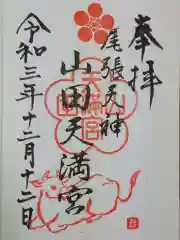 奉拝
尾張天神
山田天満宮
天満宮
令和三年十二月十二日